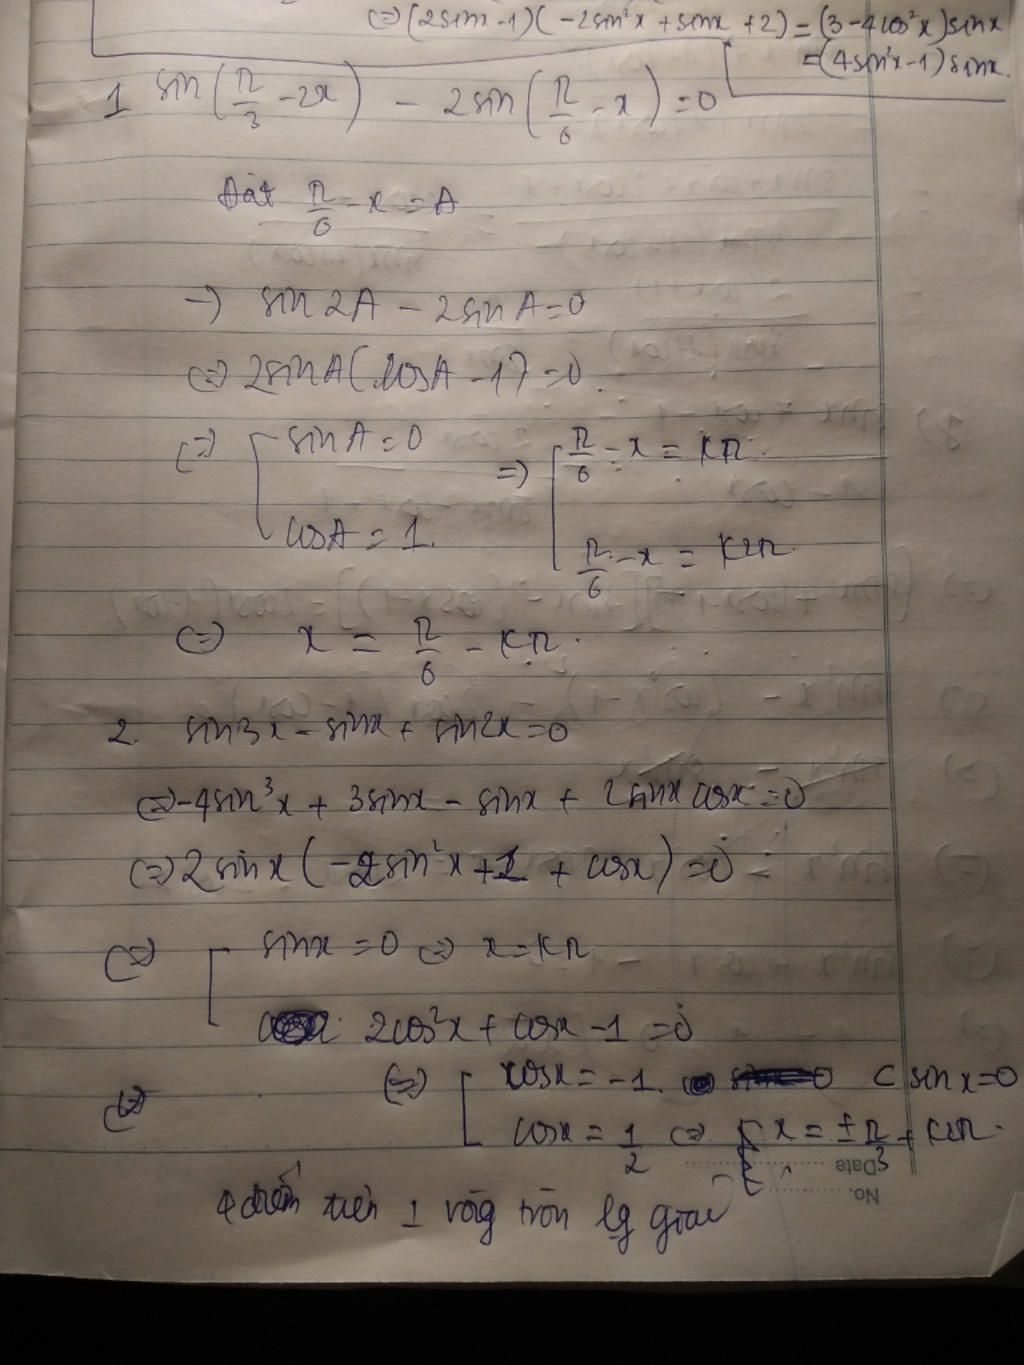 ⇔ (2sinx-1)(-2sin²x + sinx + 2) = (3-4cos²x)sinx
= (4sin²x-1)sinx.
1 sin(π/3 - 2x) - 2sin(π/6 - x) = 0
Đặt π/6 - x = A
→ sin2A - 2sinA = 0
⇔ 2sinA(cosA - 1) = 0.
⇔ [ sinA = 0 ⇒ [ π/6 - x = kπ.
cosA = 1. π/6 - x = k2π.
⇔ x = π/6 - kπ.
2. sin3x - sinx + sin2x = 0
⇔ -4sin³x + 3sinx - sinx + 2sinx cosx = 0
⇔ 2sinx(-2sin²x + 1 + cosx) = 0
⇔ [ sinx = 0 ⇔ x = kπ
2cos²x + cosx - 1 = 0
⇔ [ cosx = -1. ⊂ sinx = 0
cosx = 1/2 ⇔ x = ± π/3 + k2π.
Date
No.
4 điểm trên 1 vòng tròn lg giác